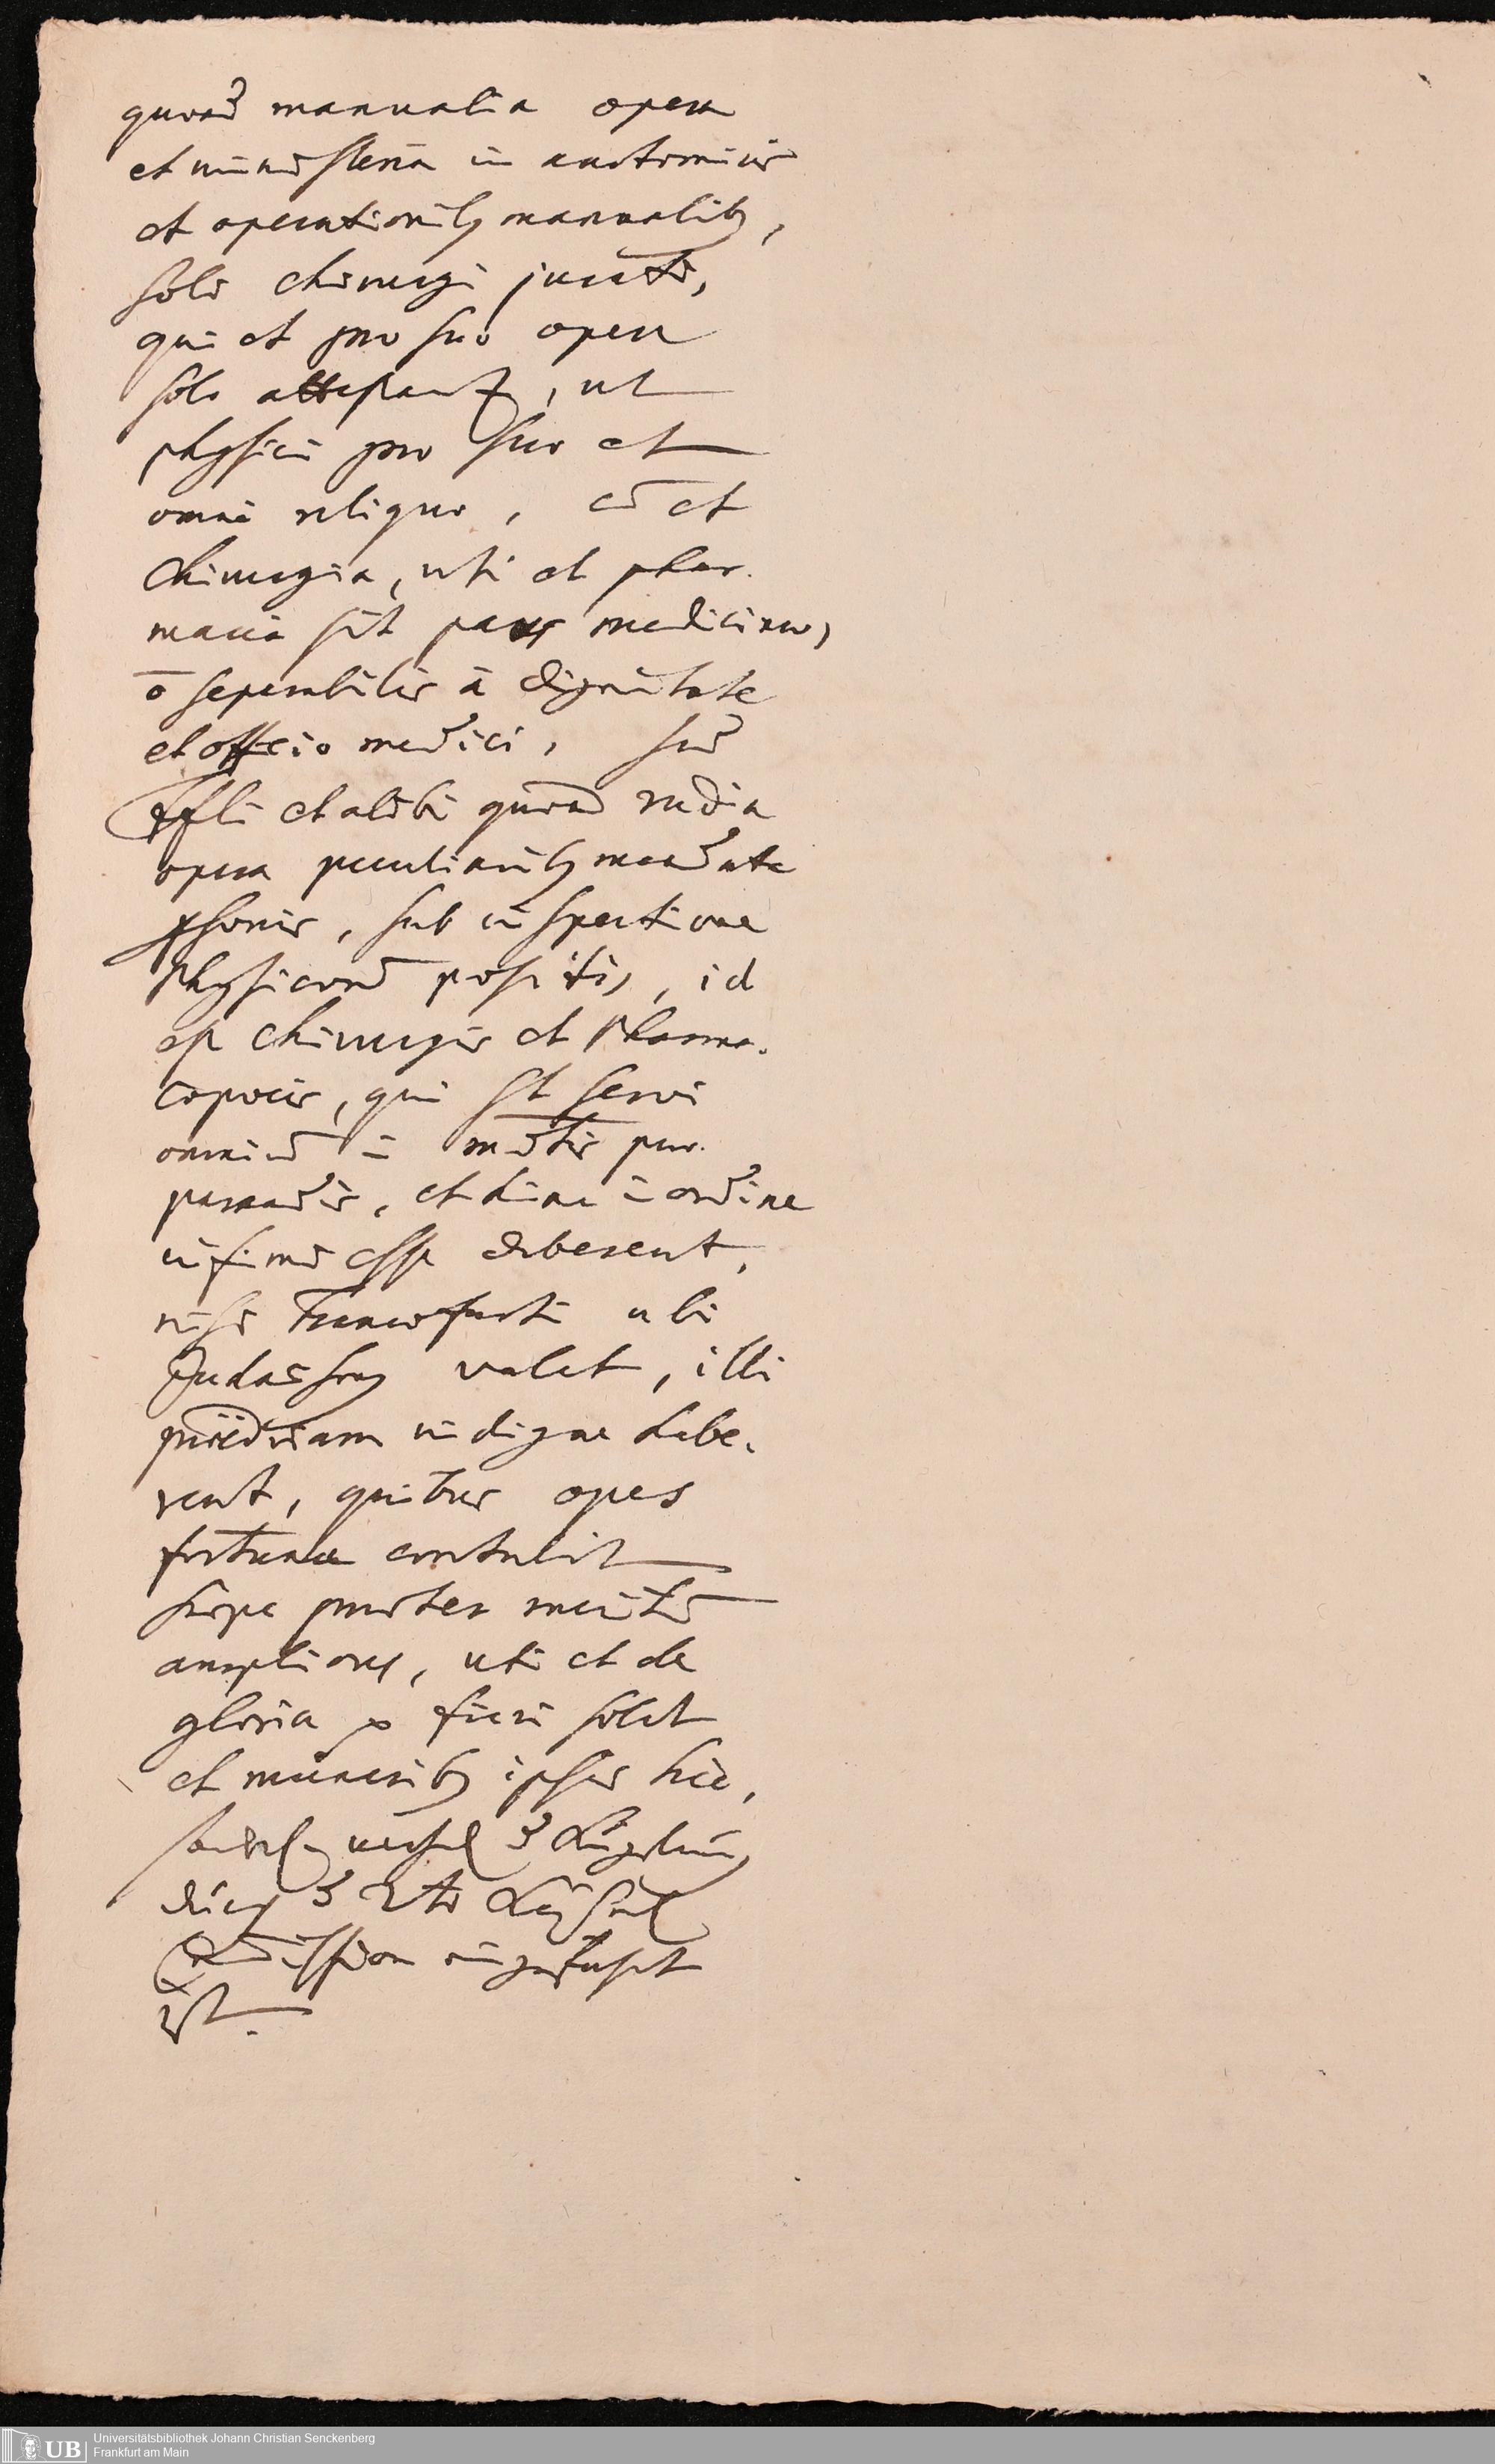 quoad manualia opera
et ministeria in anatomicis
et operationib9 manualib9,
soli chirurgi jurati,
qui et pro suo opera
soli attestant2, ut
physici pro suo et
omni reliquo, cū et
Chirurgia, uti et phar-
macia sit pars medicinae,
ō separabilis à dignitate
et officio medici, sed
Ffti et alibi quoad rudia
opera peculiarib9 mandata
psonis, sub inspectione
Physicorū positis, id
est Chirurgis et Pharma-
copoeis, qui st servi
omniū in mōtis prae-
parandis, et hinc in ordine
infimi esse deberent,
nisi Francofurti ubi
Judaismus valet, illi
praesidium indigne habe-
rent, quibus opes
fortunae contulit
saepe praeter meritū
ampliores, uti et de
gloria fieri solet
et munerib9 ipsis hic,
ist.
Universitätsbibliothek Johann Christian Senckenberg
Frankfurt am Main
UB